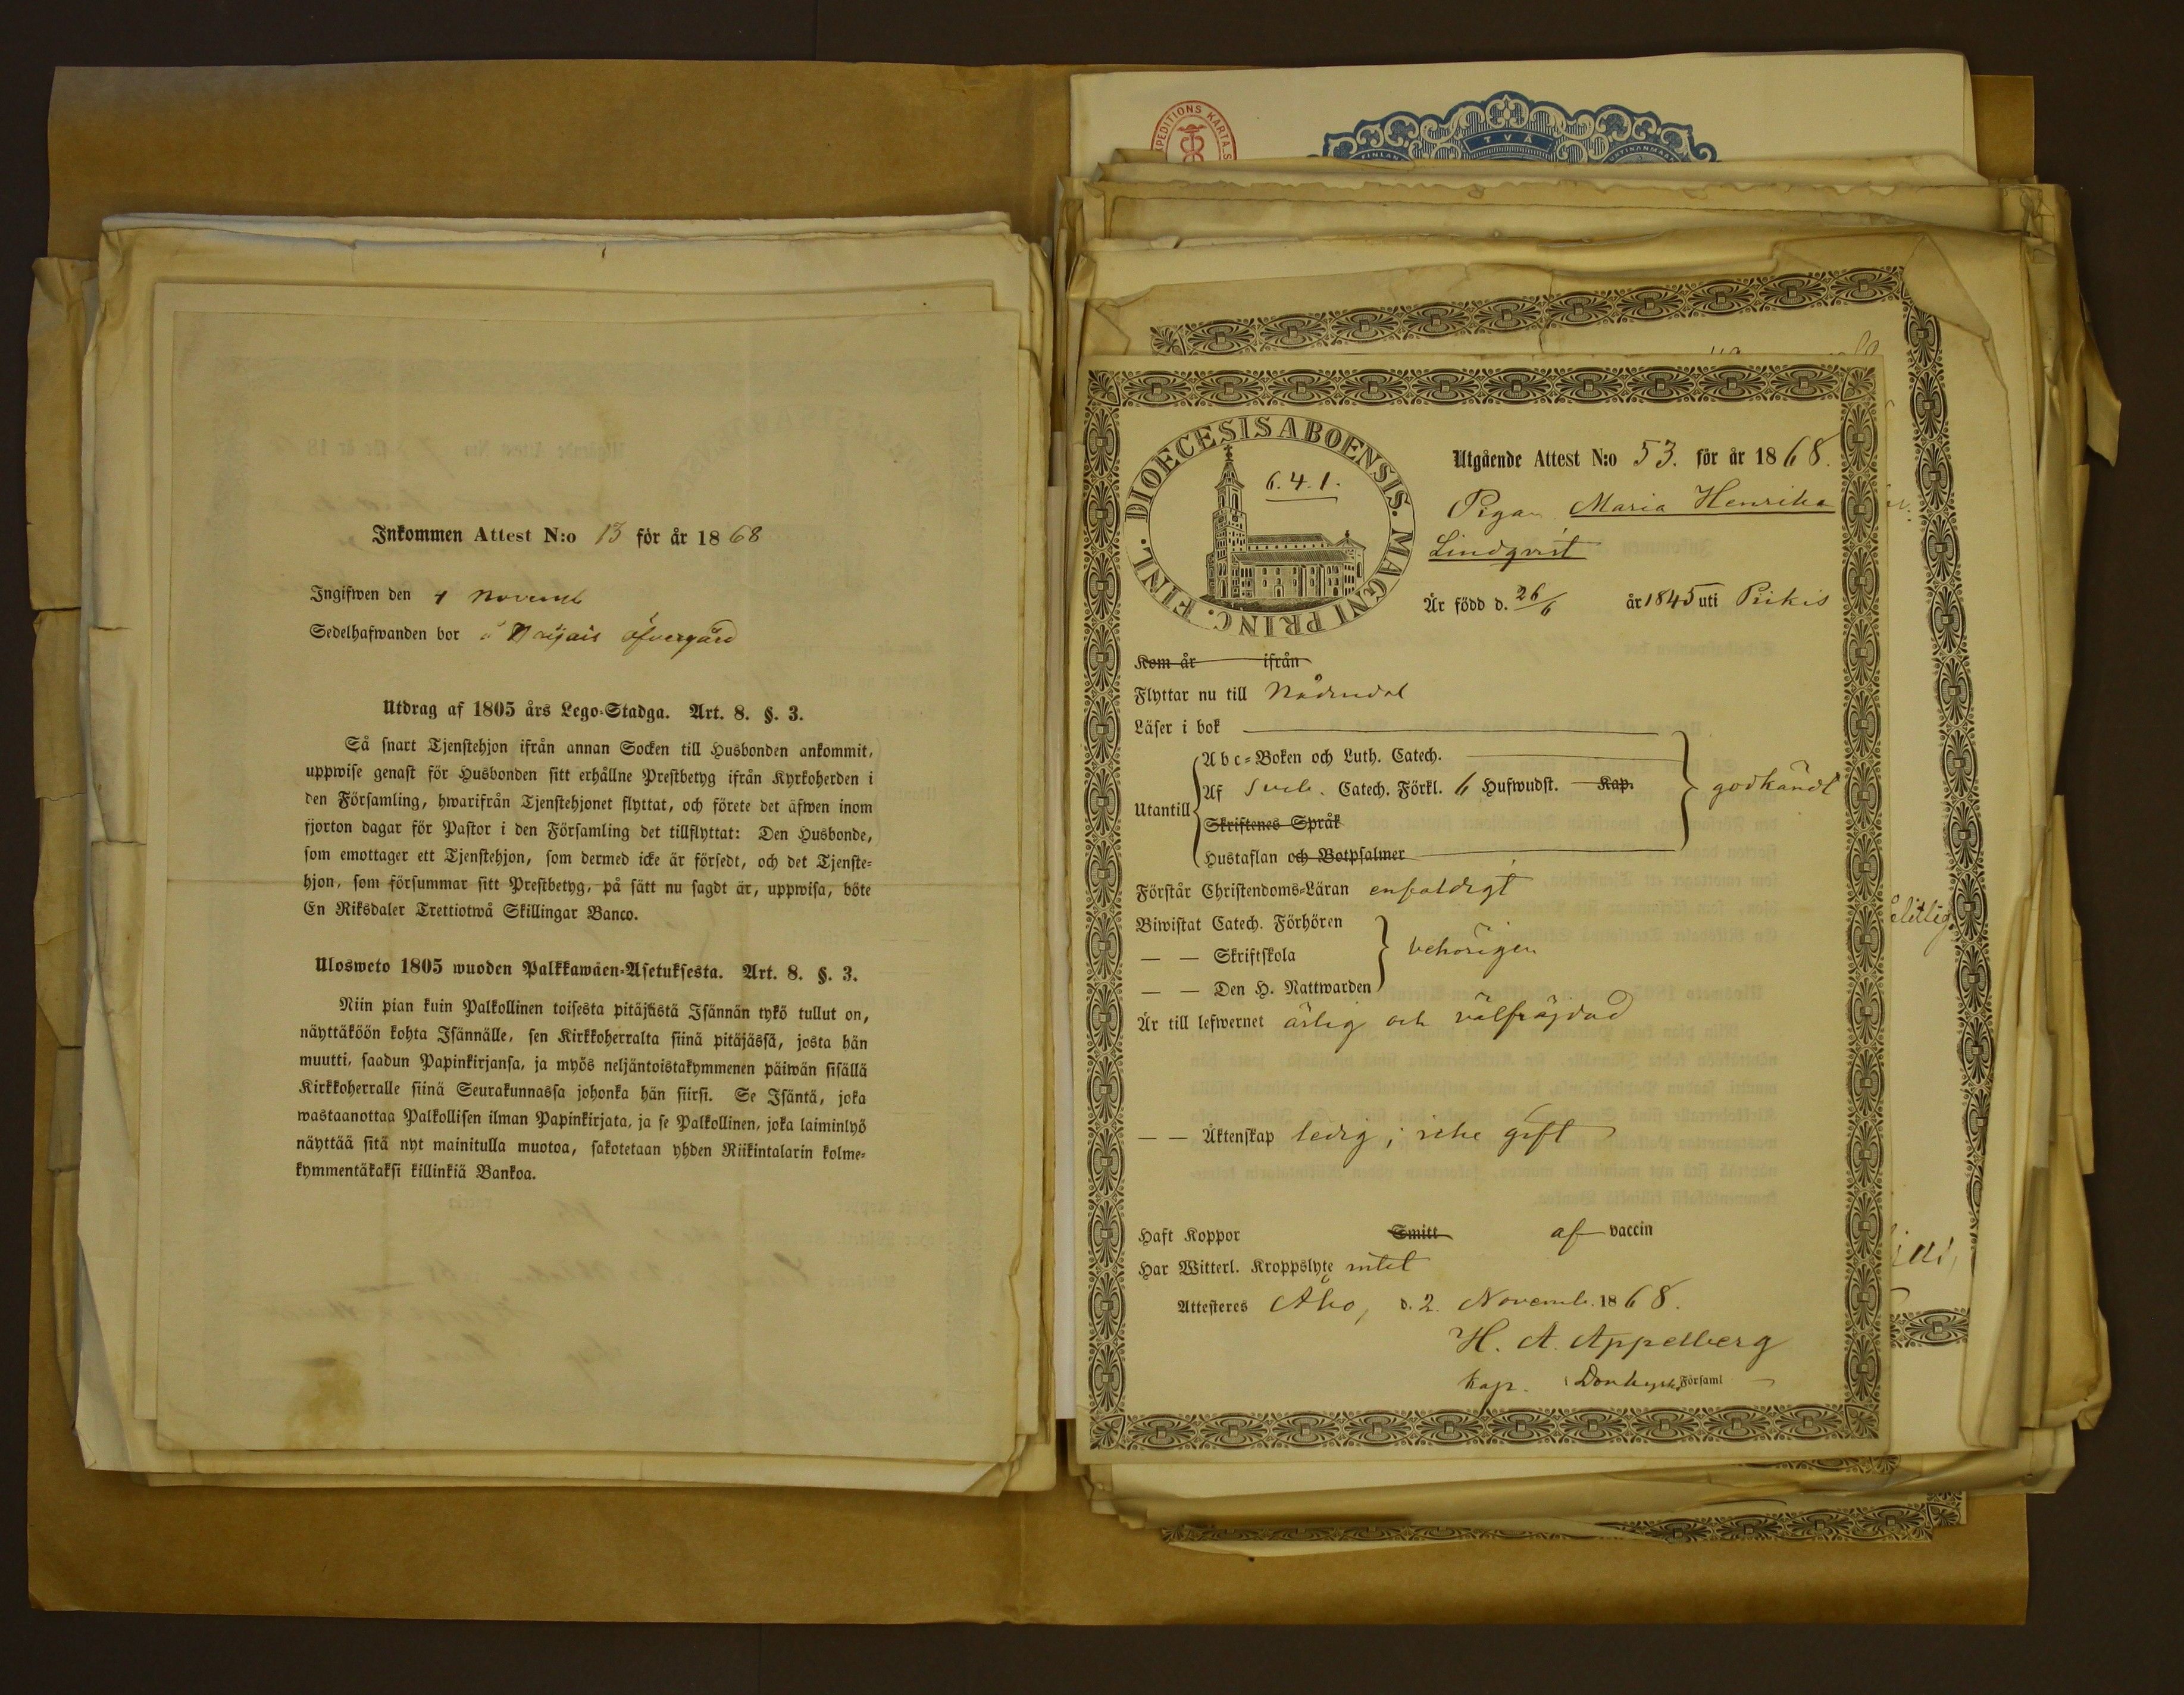 Inkommen Attest N:o 13 för år 1868
Ingifwen den 4 Novemb
Sedelhafwanden bor å Öfvergård
Utdrag af 1805 års Lego-Stadga. Art. 8. §. 3.
Så snart Tjenstehjon ifrån annan Socken till Husbonden ankommit,
uppwise genast för Husbonden sitt erhållne Prestbetyg ifrån Kyrkoherden i
den Församling, hwarifrån Tjenstehjonet flyttat, och förete det äfwen inom
fjorton dagar för Pastor i den Församling det tillflyttat: Den Husbonde,
som emottager ett Tjenstehjon, som dermed icke är försedt, och det Tjenste-
hjon, som försummar sitt Prestbetyg, på sätt nu sagdt är, uppwisa, böte
En Riksdaler Trettiotwå Skillingar Banco.
Ulosweto 1805 wuoden Palkkawäen-Asetuksesta. Art. 8. §. 3.
Niin pian kuin Palkollinen toisesta pitäjästä Isännän tykö tullut on,
näyttäköön kohta Isännälle, sen Kirkkoherralta siinä pitäjässä, josta hän
muutti, saadun Papinkirjansa, ja myös neljäntoistakymmenen päiwän sisällä
Kirkkoherralle siinä Seurakunnassa johonka hän siirsi. Se Isäntä, joka
wastaanottaa Palkollisen ilman Papinkirjata, ja se Palkollinen, joka laiminlyö
näyttää sitä nyt mainitulla muotoa, sakotetaan yhden Riikintalarin kolme-
kymmentäkaksi killinkiä Bankoa.
EXPEDITIONS KARTA.S
TVÅ
DIOECESIS ABOENSIS. MAGNI PRINC. FINL.
6.4.1.
Utgående Attest N:o 53. för år 1868.
Pigan Maria Henrika
Lindqvist
Är född d. 26/6 år 1845 uti Pikis
Kom år ifrån
Flyttar nu till Nådendal
Läser i bok
Utantill
Abc-Boken och Luth. Catech.
Af Sveb. Catech. Förkl. 6 Hufwudst. Kap.
Skriftenes Språk
Hustaflan och Botpsalmer
godkändt
Förstår Christendoms-Läran enfaldigt
Biwistat Catech. Förhören
— — Skriftskola
— — Den H. Nattwarden
behörigen
Är till lefwernet ärlig och välfrägdad
— — Äktenskap ledig; icke gift
Haft Koppor Smitt af vaccin
Har Witterl. Kroppslyte intet
Attesteres Åbo, d. 2. Novemb. 1868.
H. A. Appelberg
Kap. i Domkyrko Församl